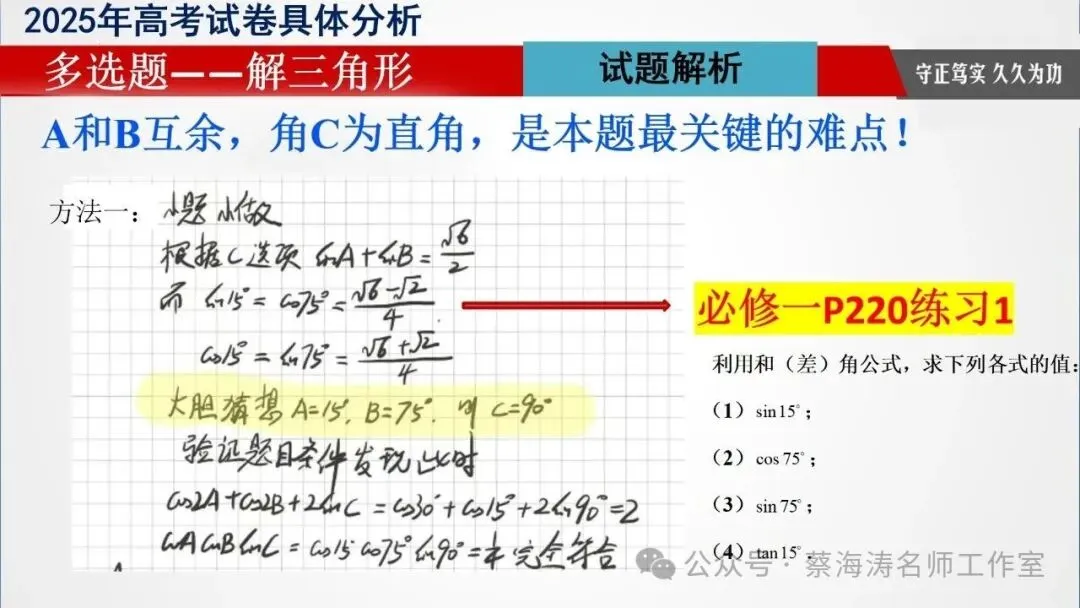 2025年高考试卷具体分析
多选题——解三角形
试题解析
守正笃实 久久为功
A和B互余，角C为直角，是本题最关键的难点！
方法一：小题小做
根据C选项 sinA+sinB=√6/2
而 sin15°=cos75°=(√6-√2)/4
cos15°=sin75°=(√6+√2)/4
大胆猜想 A=15°, B=75°. 则 C=90°
验证题目条件发现此时
cos2A+cos2B+2sinC=cos30°+cos15°+2sin90°=2
cosAcosBsinC=cos15°cos75°sin90°=1/4 完全符合
必修一P220练习1
利用和（差）角公式，求下列各式的值:
（1）sin15°；
（2）cos75°；
（3）sin75°；
（4）tan15°．
公众号·蔡海涛名师工作室